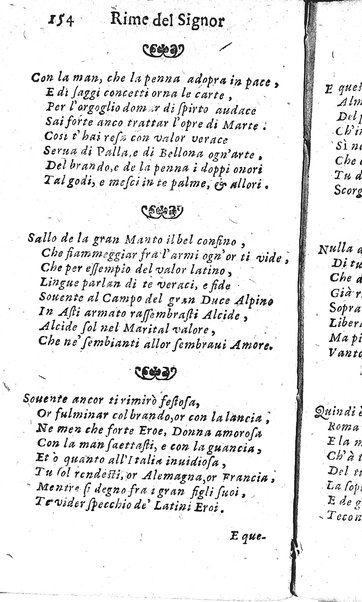 154 Rime del Signor
Con la man, che la penna adopra in pace,
E di saggi concetti orna le carte,
Per l'orgoglio domar di spirto audace
Sai forte anco trattar l'opre di Marte.
Cosi t'hai resa con valor verace
Serua di Palla, e di Bellona ogn'arte,
Del brando, e de la penna i doppi onori
Tal godi, e mesci in te palme, & allori.
Sallo de la gran Manto il bel confino,
Che fiammeggiar fra l'armi ogn'or ti vide,
Che per essempio del valor latino,
Lingue parlan di te veraci, e fide
Souente al Campo del gran Duce Alpino
In Asti armato rassembrasti Alcide,
Alcide sol nel Marital valore,
Che ne' sembianti allor sembraui Amore.
Souente ancor ti rimirò festosa,
Or fulminar col brando, or con la lancia,
Ne men che forte Eroe, Donna amorosa
Con la man saettasti, e con la guancia,
Et ò quanto all'Italia inuidiosa,
Tu sol rendesti, or Alemagna, or Francia,
Mentre sì degno fra i gran figli suoi,
Te vider specchio de' Latini Eroi.
E que-
E quel
Del
Ch'in
Sì ne
Che
Tu d
Scorg
Nulla
Di tu
Che
Già
Sopra
Libera
Ma pi
Vanto
Quindi
Roma
E la
Ch'à
Del
La sop
E de g
Tecon